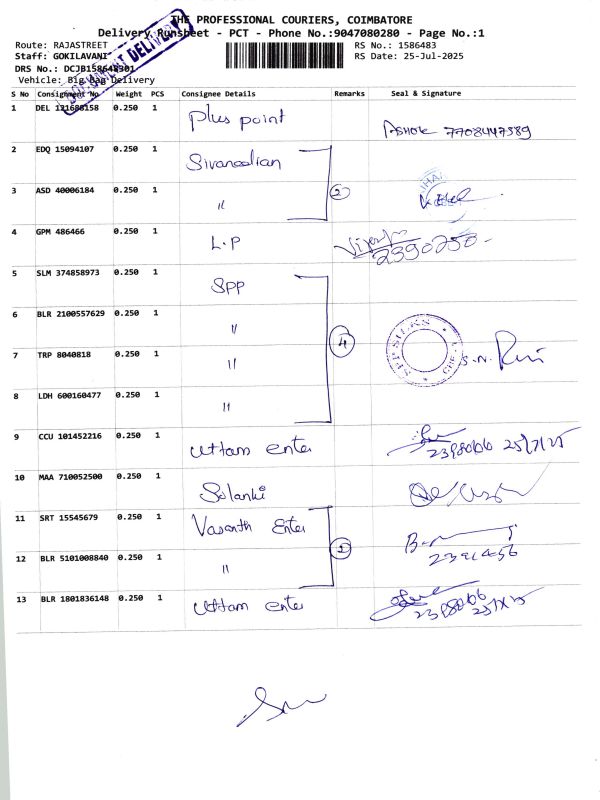 THE PROFESSIONAL COURIERS, COIMBATORE
Delivery Runsheet - PCT - Phone No.:9047080280 - Page No.:1
Route: RAJASTREET RS No.: 1586483
Staff: GOKILAVANI RS Date: 25-Jul-2025
DRS No.: DCJB158648301
Vehicle: Big Bag Delivery
DOCUMENT DELIVERY
S No Consignment No Weight PCS Consignee Details Remarks Seal & Signature
1 DEL 121688158 0.250 1 Plus point ASHOK 7708447389
2 EDQ 15094107 0.250 1 Sivanadian
3 ASD 40006184 0.250 1 〃 2
4 GPM 486466 0.250 1 L.P 2390250
5 SLM 374858973 0.250 1 SPP
6 BLR 2100557629 0.250 1 〃 4
7 TRP 8040818 0.250 1 〃 SPP SILKS S.N.
8 LDH 600160477 0.250 1 〃
9 CCU 101452216 0.250 1 Uttam enter 25/7/25
10 MAA 710052500 0.250 1 Solanki
11 SRT 15545679 0.250 1 Vasanth Enter 2
12 BLR 5101008840 0.250 1 〃
13 BLR 1801836148 0.250 1 Uttam enter